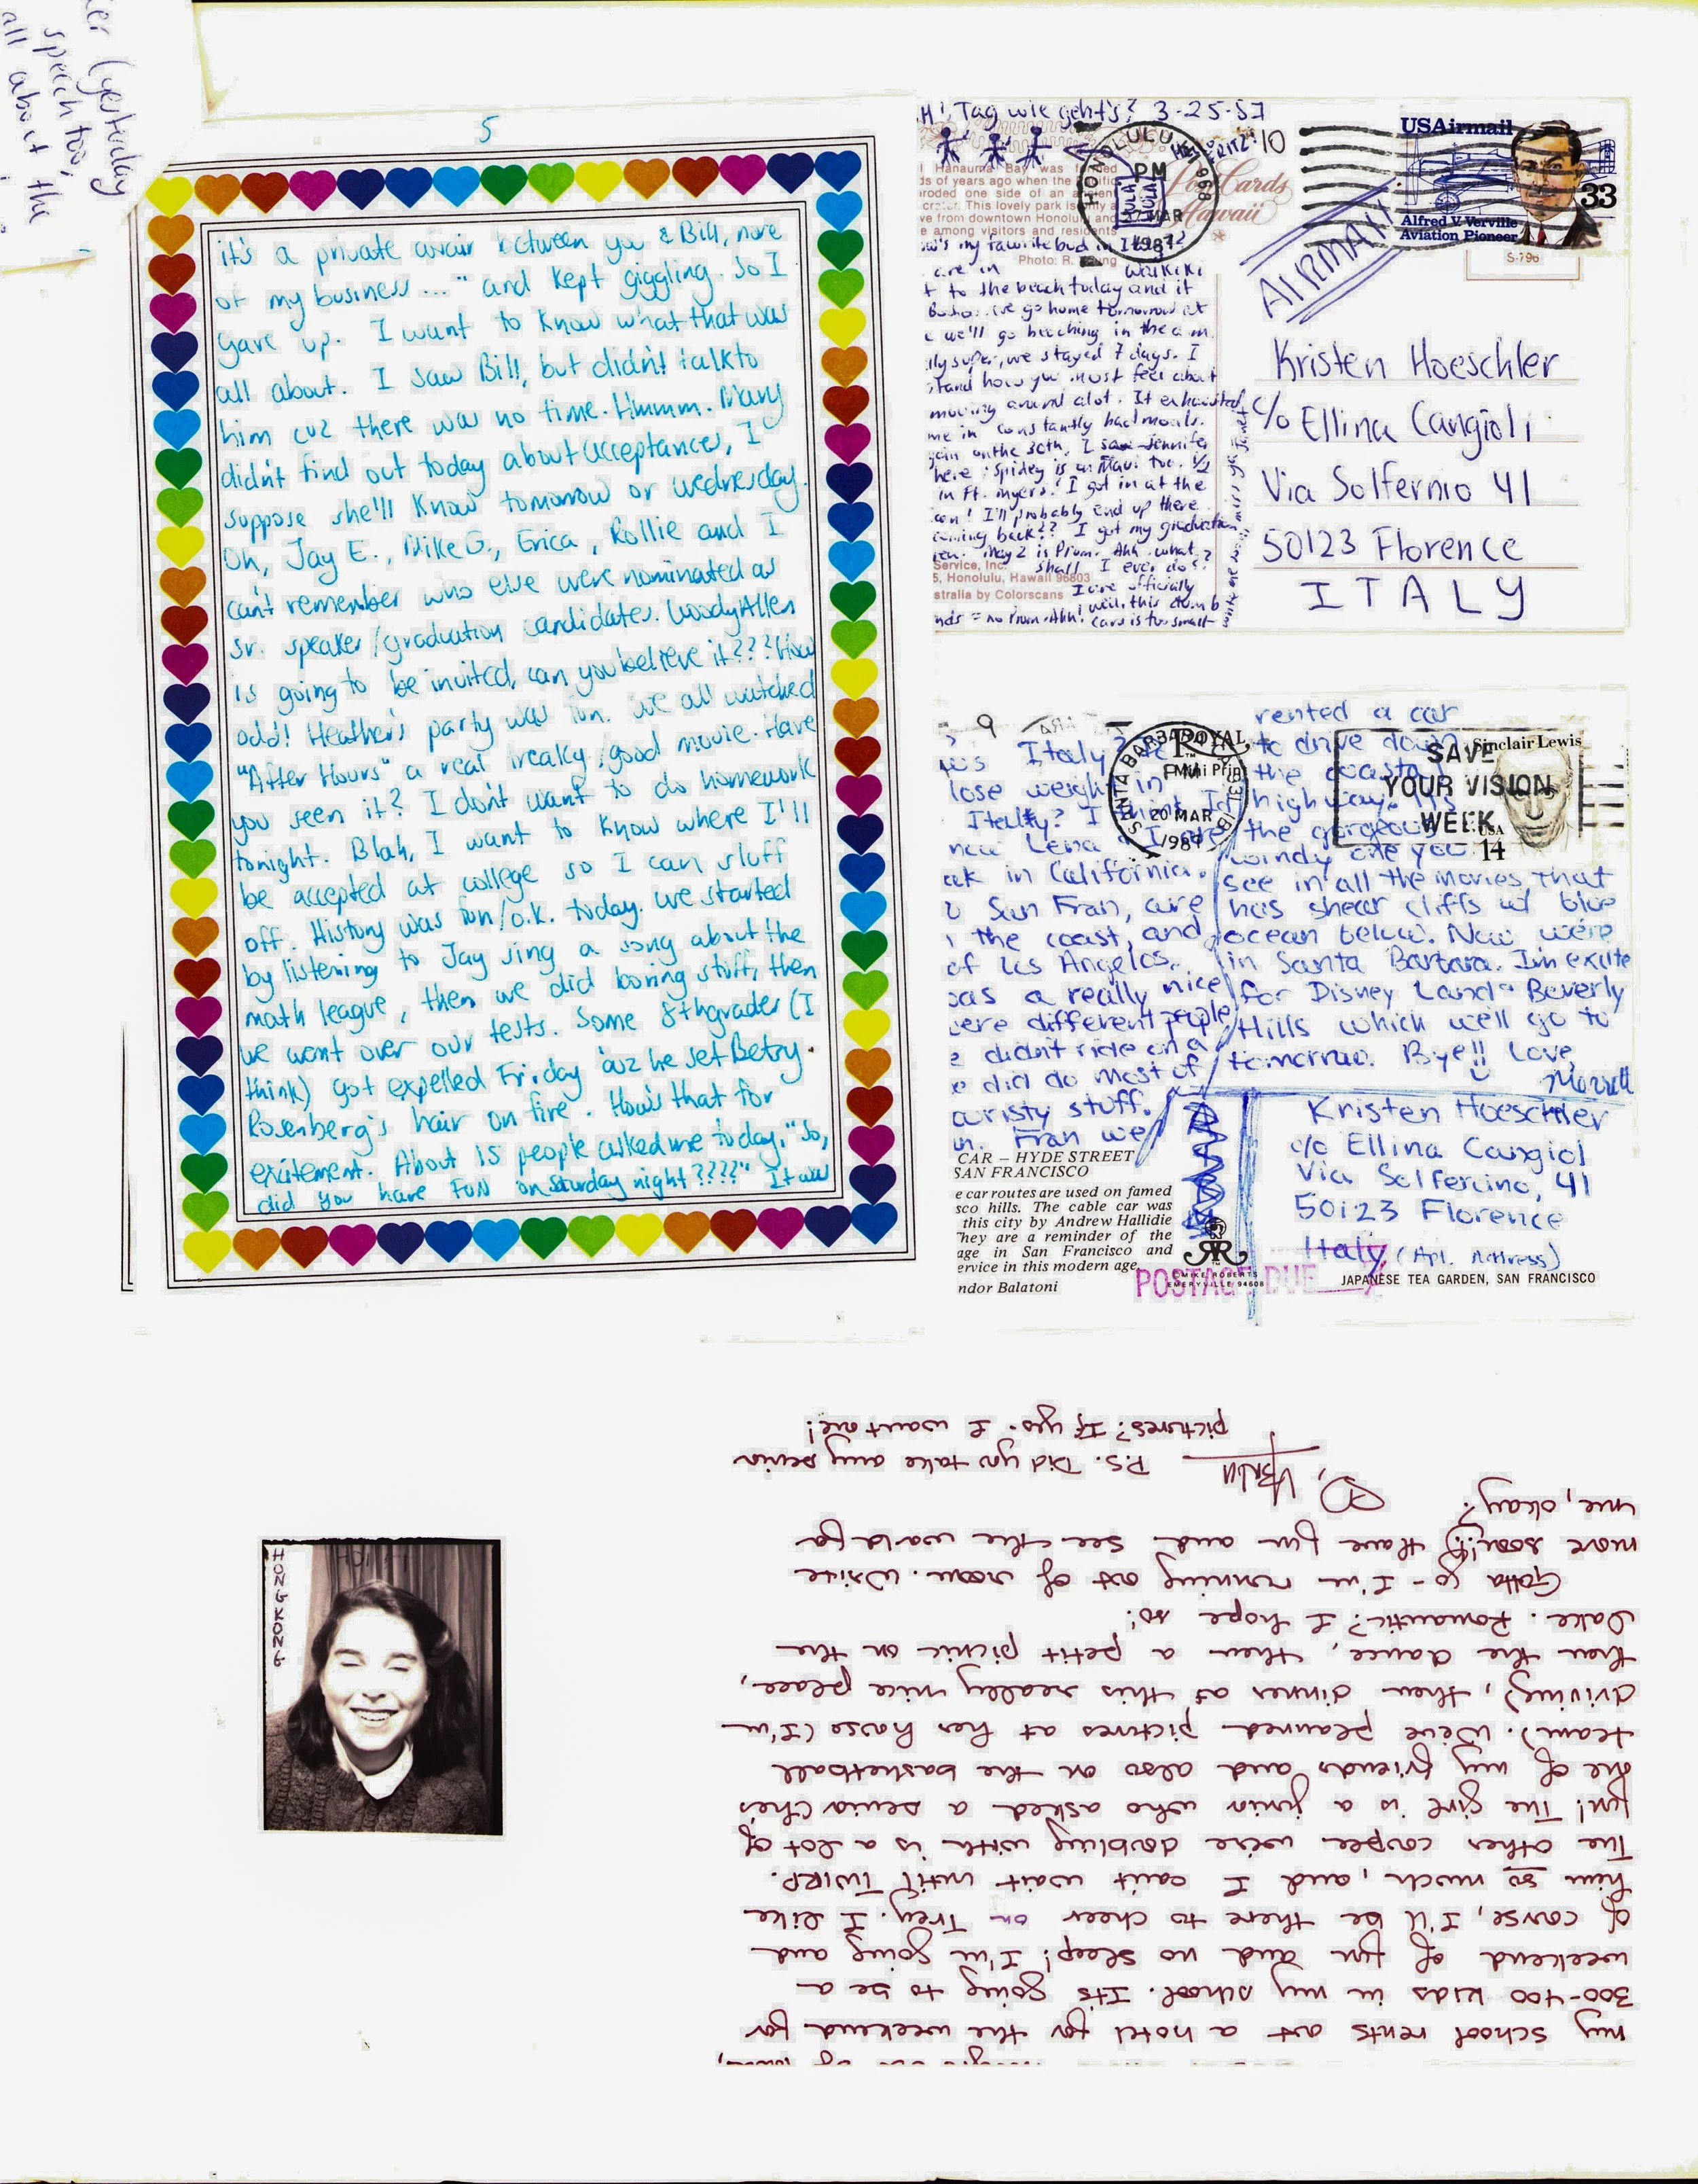 er (yesterday
speech too,
all about the
5
it's a private affair between you & Bill, none
of my business..." and kept giggling. So I
gave up. I want to know what that was
all about. I saw Bill, but didn't talk to
him cuz there was no time. Hmmm. Mary
didn't find out today about acceptances, I
suppose she'll know tomorrow or wednesday.
Oh, Jay E., Mike G., Erica, Rollie and I
can't remember who else were nominated as
sr. speaker/graduation candidates. Woody Allen
is going to be invited, can you believe it??? How
odd! Heather's party was fun. we all watched
"After Hours" a real freaky, good movie. Have
you seen it? I don't want to do homework
tonight. Blah, I want to know where I'll
be accepted at college so I can sluff
off. History was fun/o.k. today. we started
by listening to Jay sing a song about the
math league, then we did boring stuff, then
we went over our tests. Some 8thgrader (I
think) got expelled Friday 'cuz he set Betsy
Rosenberg's hair on fire. How's that for
excitement. About 15 people asked me today, "So,
did you have FUN on saturday night????" It was
Hi! Tag wie geht's? 3-25-87
HONOLULU, HI 968
PM
MAR
1987
10
Post Cards
Hawaii
USAirmail
33
Alfred V. Verville
Aviation Pioneer
S-796
AIRMAIL
Hanauma Bay was formed
ds of years ago when the
roded one side of an
crater. This lovely park is only a
ve from downtown Honolulu and
e among visitors and residents
Photo: R.
are in Waikiki
t to the beach today and it
we go home tomorrow at
e we'll go beaching in the a.m.
lly super, we stayed 7 days. I
stand how you must feel about
moving around alot. It exhausted
me in constantly bad moods.
gain on the 30th. I saw Jennifer
here; Spidey is on Maui too. 1/2
in Ft. Myers! I got in at the
con! I'll probably end up there
coming back?? I got my graduation
May 2 is Prom. Ahh what
shall I ever do?
Service, Inc.
5, Honolulu, Hawaii 96803
stralia by Colorscans
officially
well, this dumb
nds = no Prom. Ahh! card is too small
Kristen Hoeschler
c/o Ellina Cangioli
Via Solfernio 41
50123 Florence
ITALY
Italy?
lose weight in
Italy? I
now Lena & I are
ak in California.
San Fran, are
the coast, and
of Los Angeles.
was a really nice
were different people
e didn't ride on a
e did do most of
ouristy stuff.
n. Fran we
rented a car
to drive down
the coastal
highway. It's
the gorgeous
windy one you
see in all the movies that
has shear cliffs w/ blue
ocean below. Now we're
in Santa Barbara. I'm excite
for Disney Land & Beverly
Hills which we'll go to
tomorrow. Bye!! Love,
SANTA BARBARA
PM
20 MAR
1987
ROYAL
SAVE
YOUR VISION
WEEK
Sinclair Lewis
USA
14
CAR – HYDE STREET
SAN FRANCISCO
e car routes are used on famed
sco hills. The cable car was
this city by Andrew Hallidie
They are a reminder of the
age in San Francisco and
ervice in this modern age.
ndor Balatoni
Kristen Hoeschler
c/o Ellina Cangiol
Via Solfercino, 41
50123 Florence
Italy (Apt. Address)
© MIKE ROBERTS
EMERYVILLE 94608
POSTAGE DUE
JAPANESE TEA GARDEN, SAN FRANCISCO
HONG KONG
my school rents out a hotel for the weekend for
300-400 kids in my school. Its going to be a
weekend of fun and no sleep! I'm going and
of course, I'll be there to cheer on Trey. I like
him so much, and I can't wait until TWIRP.
The other couple we're doubling with is a lot of
fun! The girl is a junior who asked a senior (he's
one of my friends and also on the basketball
team). We've planned pictures at her house (I'm
driving), then dinner at this really nice place,
then the dance, then a petit picnic on the
lake. Romantic? I hope so!
Gotta go - I'm running out of room. Write
more soon!! Have fun and see the world for
me, okay?
P.S. Did you take any senior
pictures? If yes- I want one!